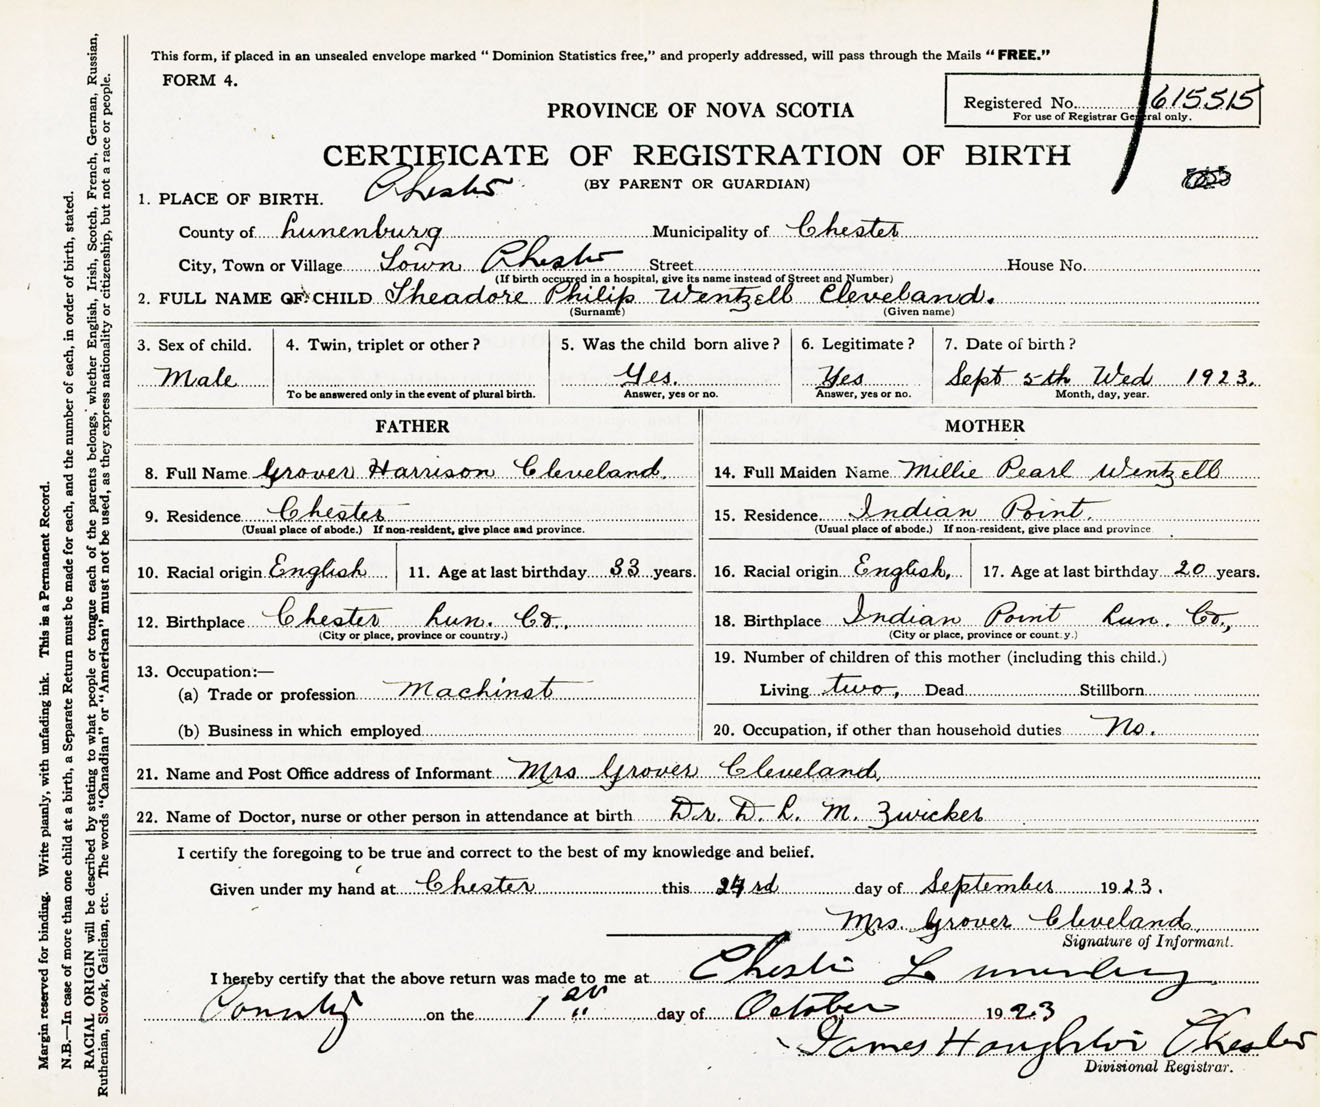 This form, if placed in an unsealed envelope marked “ Dominion Statistics free,” and properly addressed, will pass through the Mails “ FREE.”
FORM 4.
Registered No. 615515
For use of Registrar General only.
PROVINCE OF NOVA SCOTIA
CERTIFICATE OF REGISTRATION OF BIRTH
(BY PARENT OR GUARDIAN)
1. PLACE OF BIRTH. Chester
County of Lunenburg Municipality of Chester
City, Town or Village Town Chester Street House No.
(If birth occurred in a hospital, give its name instead of Street and Number)
2. FULL NAME OF CHILD Theadore Philip Wentzell Cleveland.
(Surname) (Given name)
3. Sex of child. 4. Twin, triplet or other ? 5. Was the child born alive ? 6. Legitimate ? 7. Date of birth ?
Male Yes. Yes Sept 5th Wed 1923.
To be answered only in the event of plural birth. Answer, yes or no. Answer, yes or no. Month, day, year.
FATHER MOTHER
8. Full Name Grover Harrison Cleveland. 14. Full Maiden Name Millie Pearl Wentzell
9. Residence Chester 15. Residence Indian Point.
(Usual place of abode.) If non-resident, give place and province. (Usual place of abode.) If non-resident, give place and province
10. Racial origin English 11. Age at last birthday 33 years. 16. Racial origin English, 17. Age at last birthday 20 years.
12. Birthplace Chester Lun. Co., 18. Birthplace Indian Point Lun. Co.,
(City or place, province or country.) (City or place, province or country.)
13. Occupation:— 19. Number of children of this mother (including this child.)
(a) Trade or profession Machinst Living two, Dead Stillborn
(b) Business in which employed 20. Occupation, if other than household duties No.
21. Name and Post Office address of Informant Mrs Grover Cleveland,
22. Name of Doctor, nurse or other person in attendance at birth Dr. D. L. M. Zwicker
I certify the foregoing to be true and correct to the best of my knowledge and belief.
Given under my hand at Chester this 24rd day of September 1923.
Mrs. Grover Cleveland,
Signature of Informant.
I hereby certify that the above return was made to me at Chester Lunenburg
County on the 1st day of October 1923
James Houghton Chester
Divisional Registrar.
Margin reserved for binding. Write plainly, with unfading ink. This is a Permanent Record.
N.B.—In case of more than one child at a birth, a Separate Return must be made for each, and the number of each, in order of birth, stated.
RACIAL ORIGIN will be described by stating to what people or tongue each of the parents belongs, whether English, Irish, Scotch, French, German, Russian,
Ruthenian, Slovak, Galician, etc. The words “Canadian” or “American” must not be used, as they express nationality or citizenship, but not a race or people.